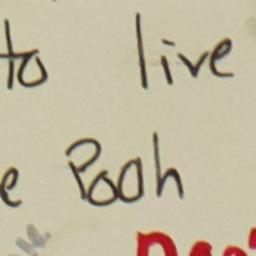 to live
e Pooh